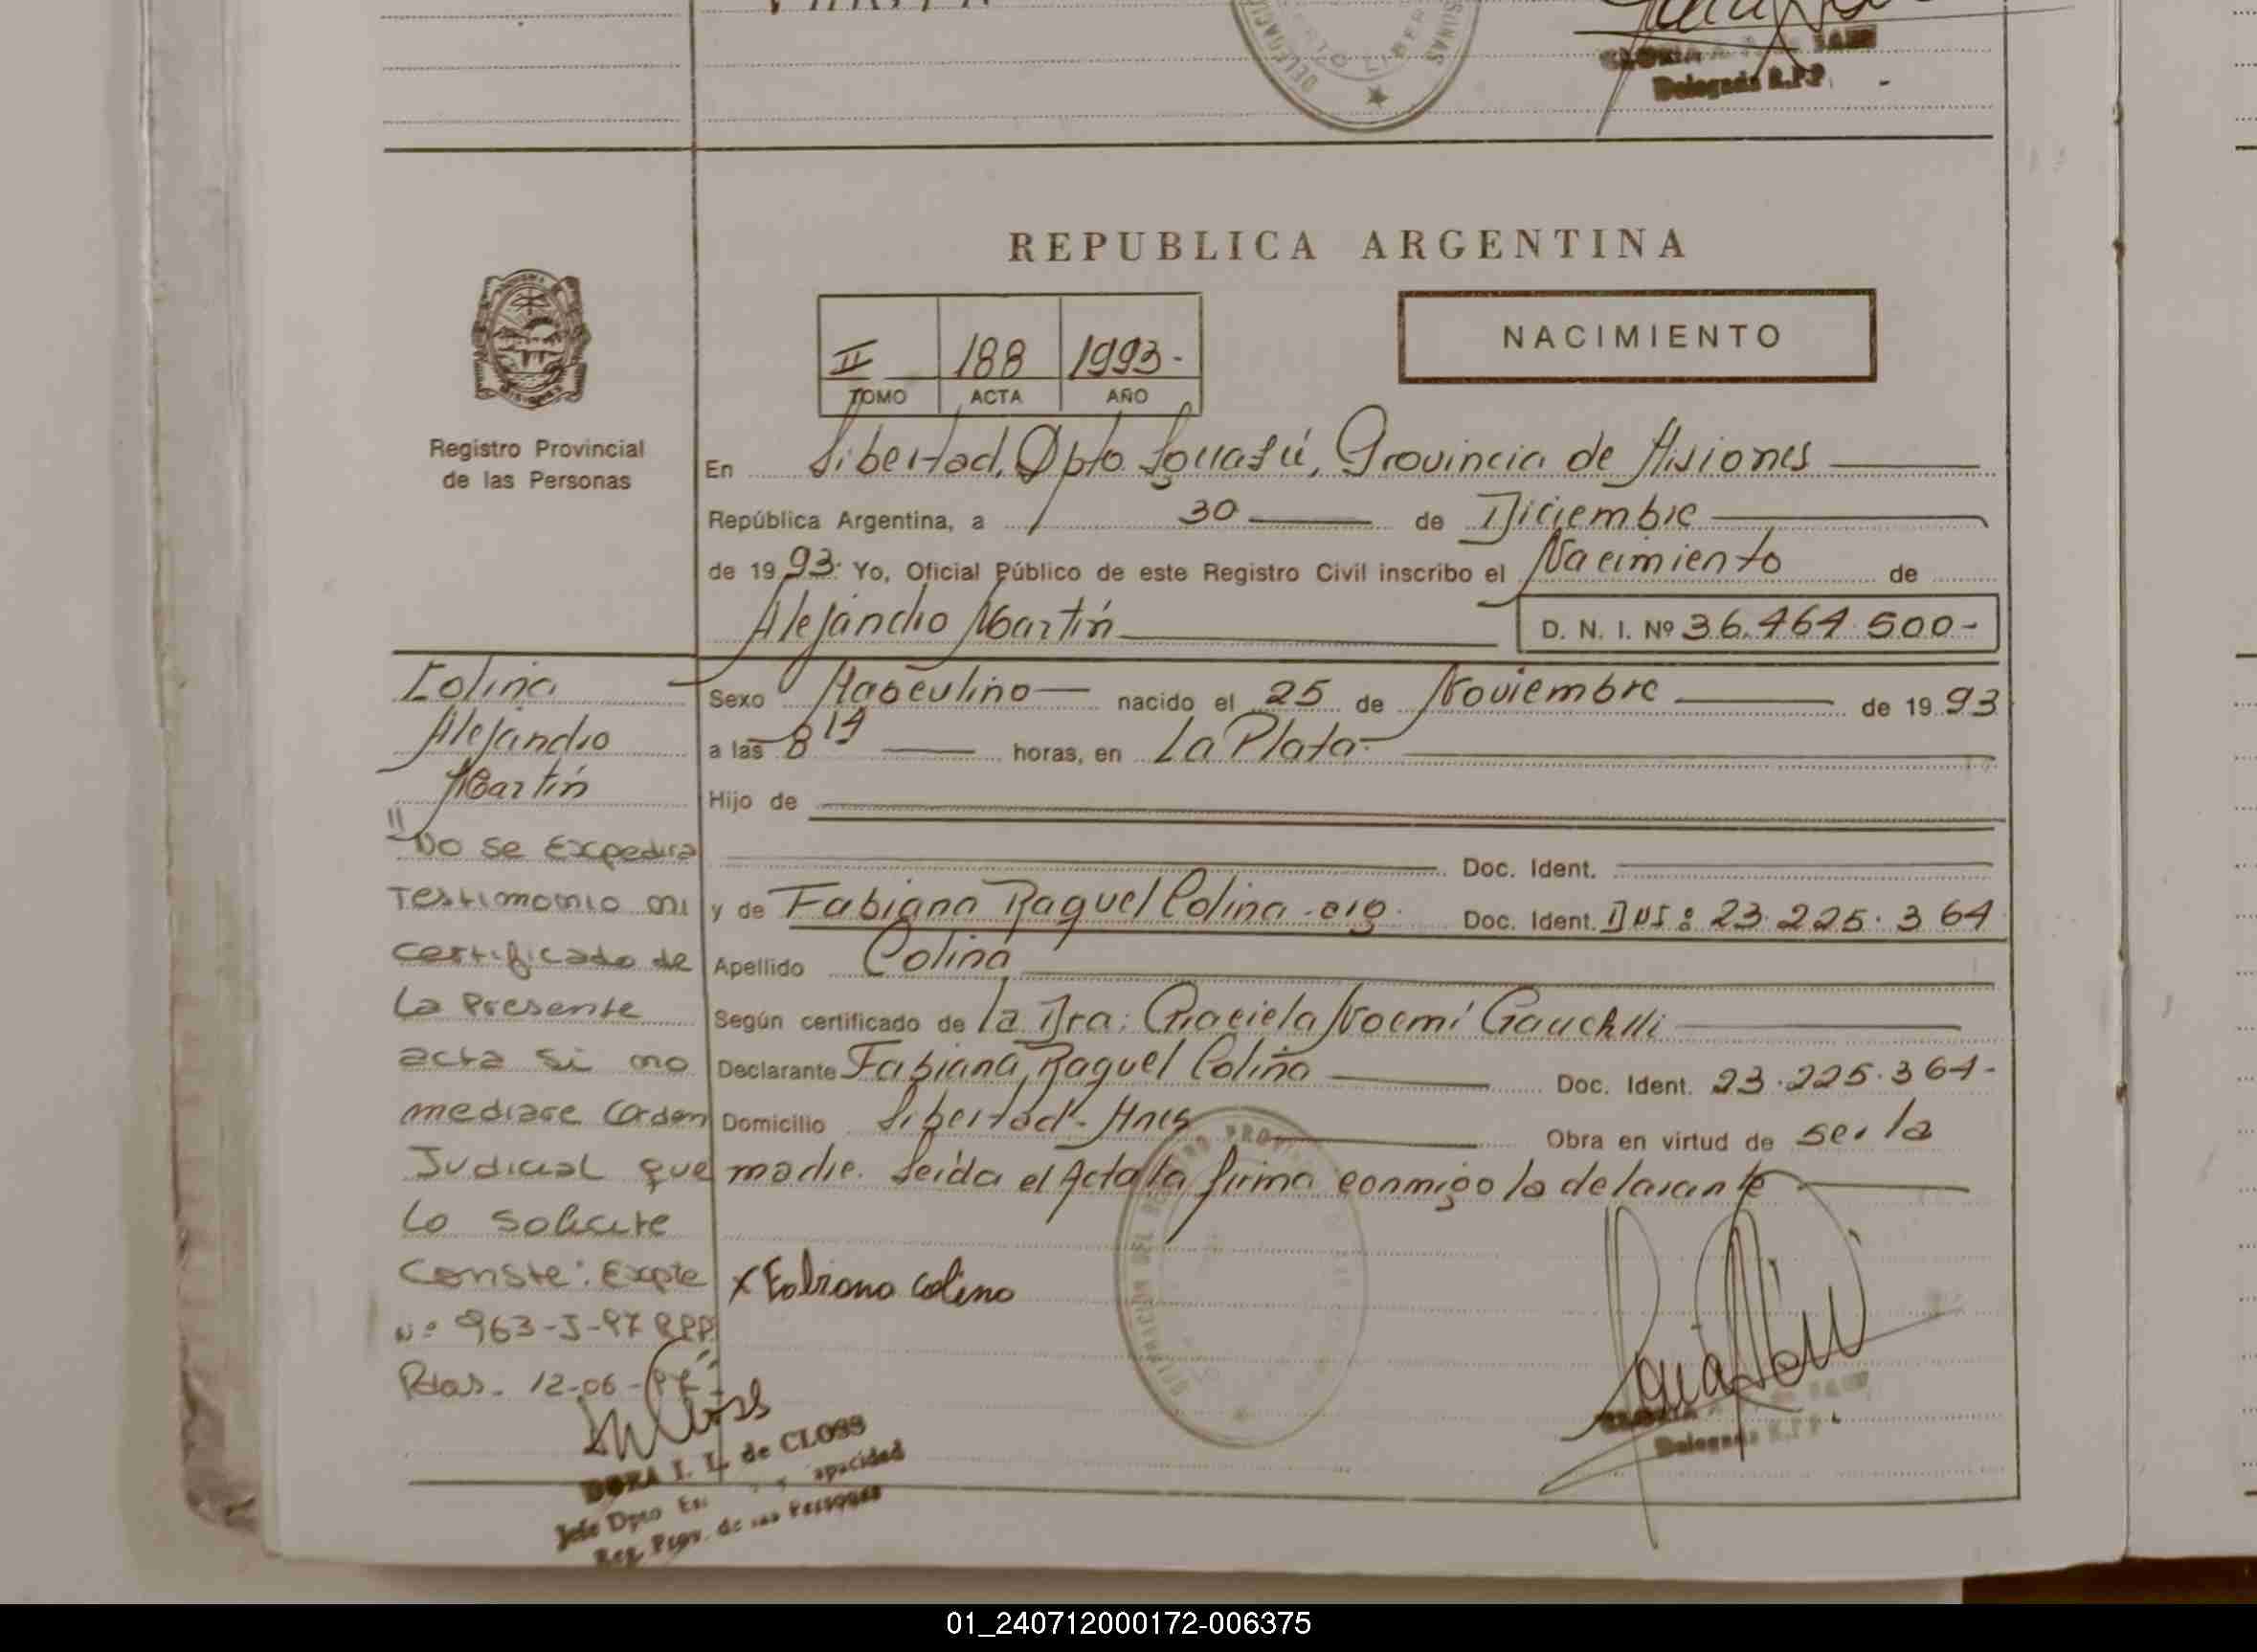 Delegada R.P.P.
REPUBLICA ARGENTINA
II 188 1993-
TOMO ACTA AÑO
NACIMIENTO
Registro Provincial
de las Personas
En Libertad, Dpto Iguazú, Provincia de Misiones
República Argentina, a 30 de Diciembre
de 1993. Yo, Oficial Público de este Registro Civil inscribo el Nacimiento de
Alejandro Martín D. N. I. Nº 36.464.500-
Colina
Alejandro
Martín
Sexo Masculino nacido el 25 de Noviembre de 1993
a las 8 14 horas, en La Plata-
Hijo de
Doc. Ident.
y de Fabiana Raquel Colina-arg. Doc. Ident. DNI: 23.225.364
Apellido Colina
Según certificado de la Dra: Graciela Noemí
Declarante Fabiana Raquel Colina Doc. Ident. 23.225.364-
Domicilio Libertad- Mnes Obra en virtud de ser la
madre. Leída el Acta la firma conmigo la delarante
X Fabiana Colina
No se Expedira
Testimonio ni
certificado de
La Presente
acta si no
mediare Orden
Judicial que
Lo Solicite
Conste: Expte
Nº 963-J-97 RPP
Pdas. 12-06-97
DORA I. L. de CLOSS
Jefe Dpto
Reg. Prov. de las Personas
GLORIA
Delegada R.P.P.
01_240712000172-006375